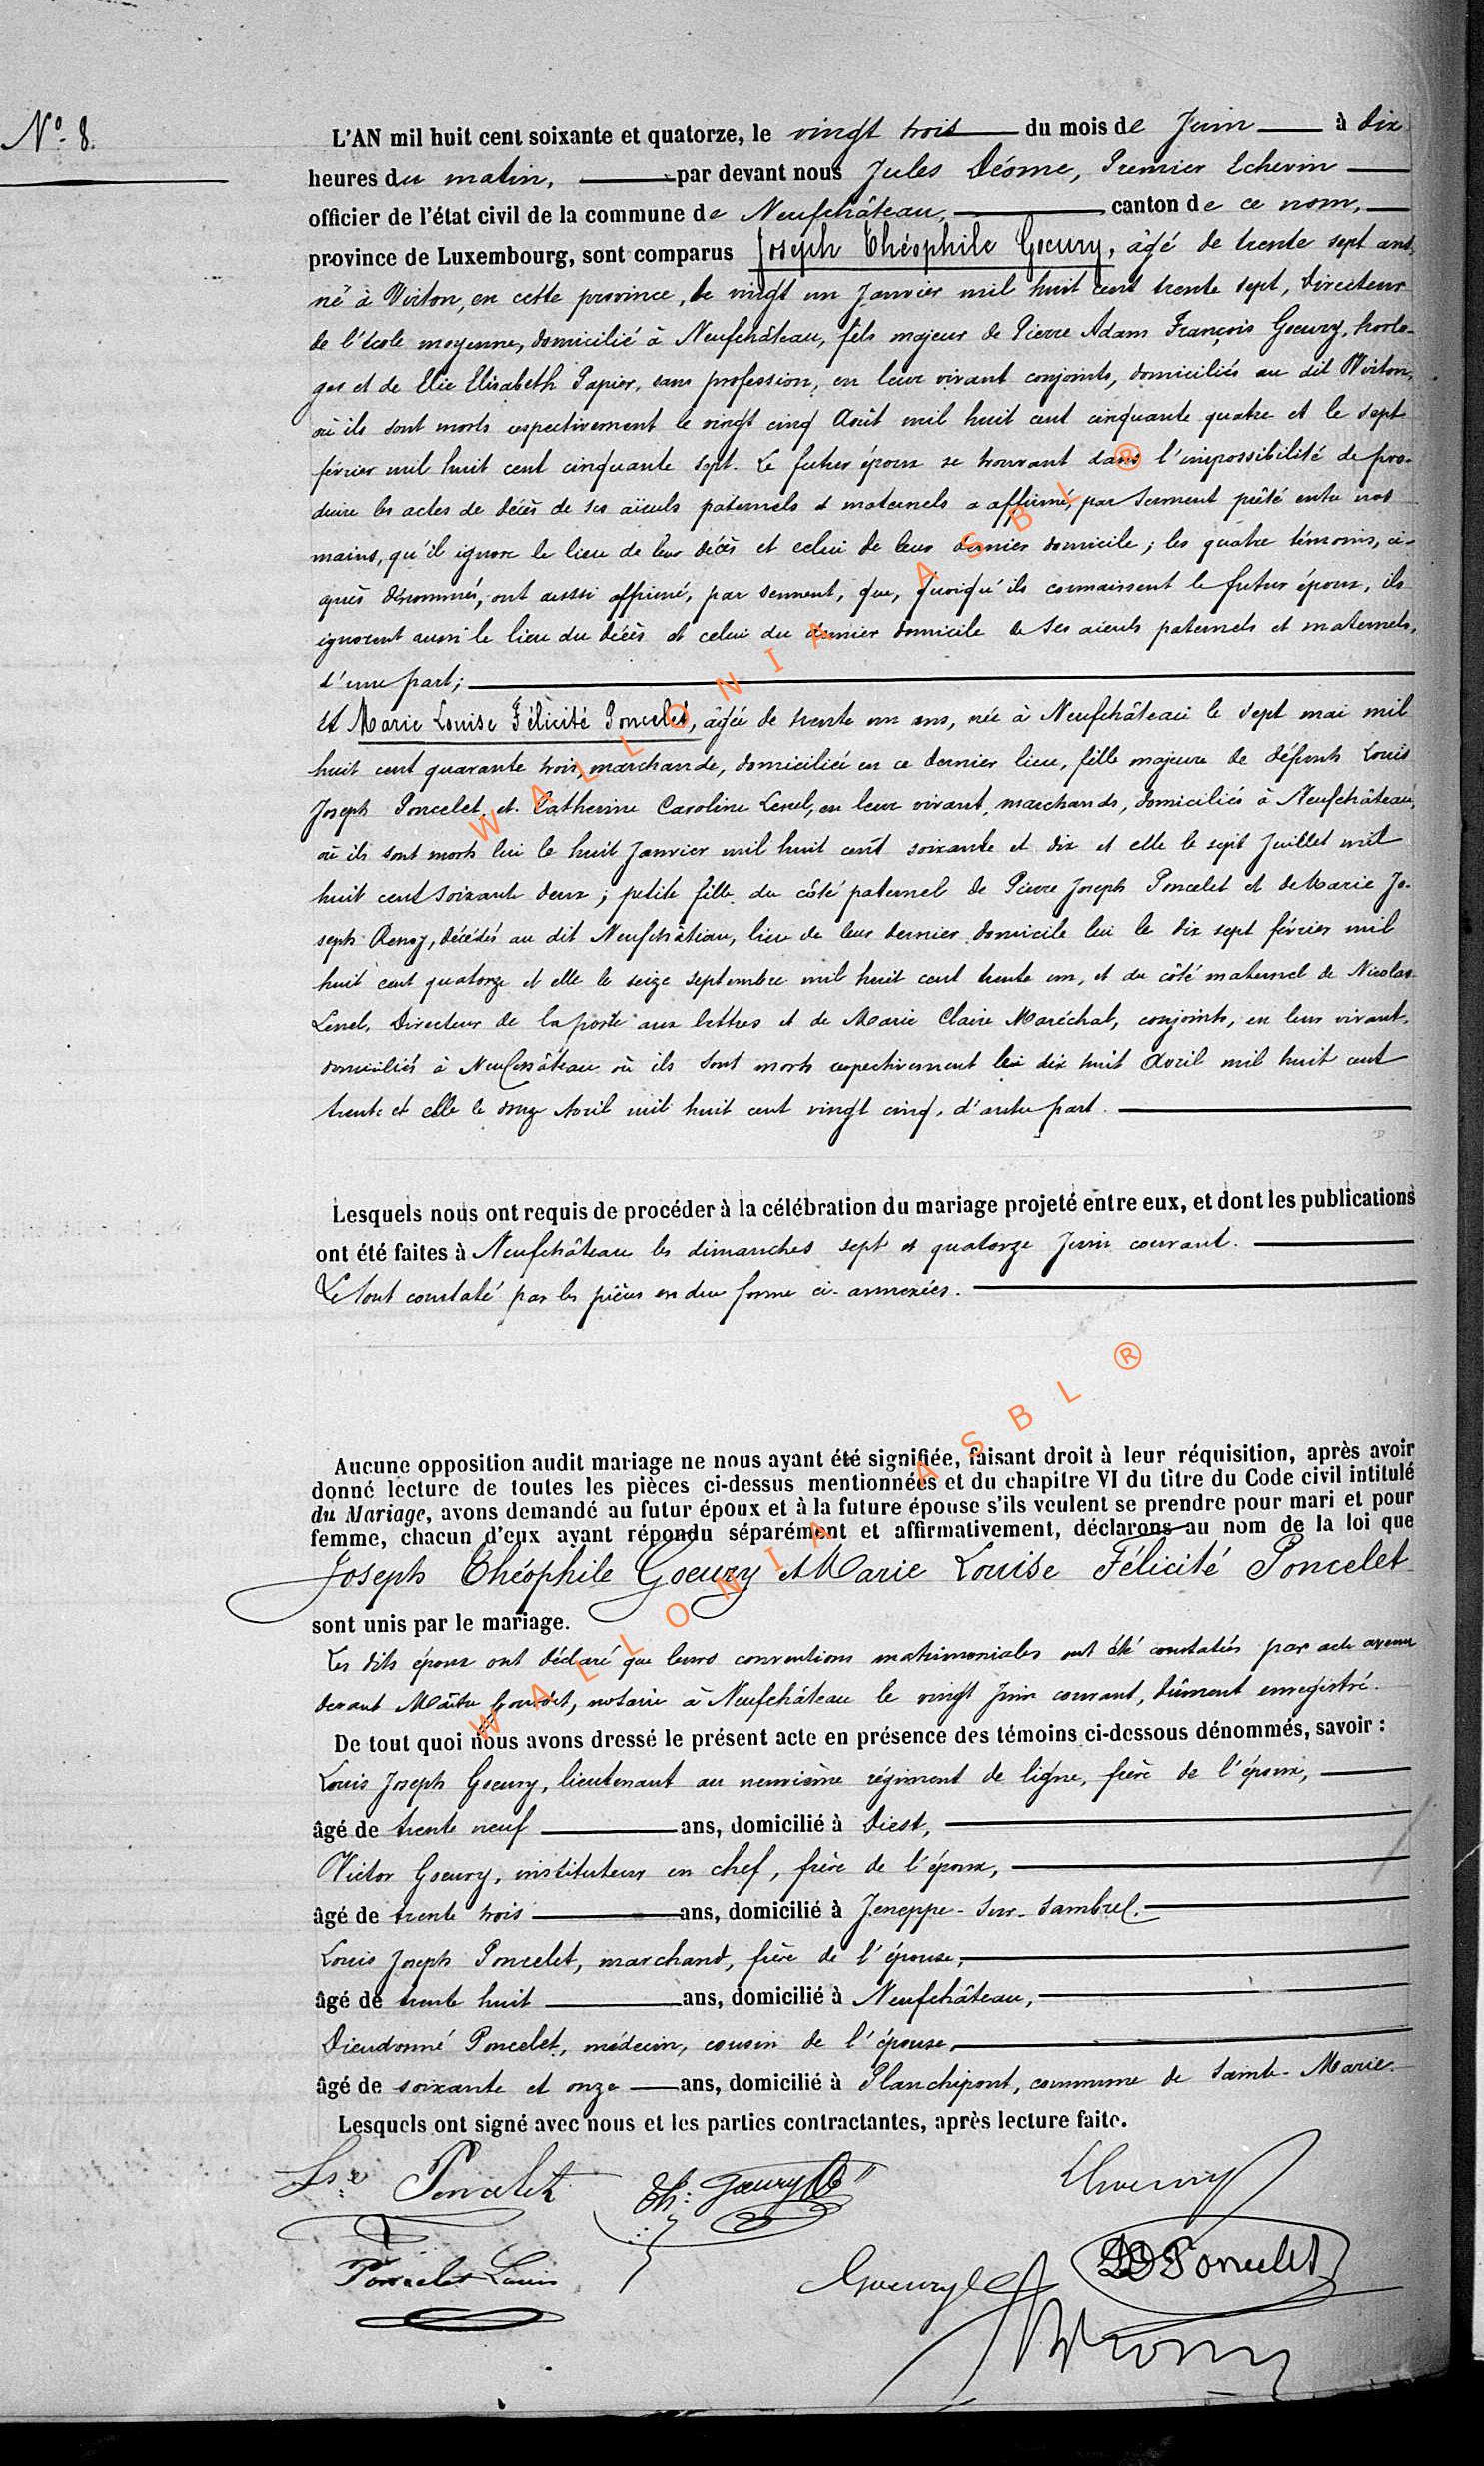 N° 8.
L'AN mil huit cent soixante et quatorze, le vingt trois du mois de Juin à dix
heures du matin, par devant nous Jules Déome, Premier Echevin
officier de l'état civil de la commune de Neufchâteau, canton de ce nom,
province de Luxembourg, sont comparus Joseph Théophile Goeury, âgé de trente sept ans,
né à Virton, en cette province, le vingt un Janvier mil huit cent trente sept, Directeur
de l'école moyenne, domicilié à Neufchâteau, fils majeur de Pierre Adam François Goeury, horlo-
ger et de Elie Elisabeth Papier, sans profession, en leur vivant conjoints, domiciliés au dit Virton,
où ils sont morts respectivement le vingt cinq Août mil huit cent cinquante quatre et le sept
février mil huit cent cinquante sept. Le futur époux se trouvant dans l'impossibilité de pro-
duire les actes de décès de ses aïeuls paternels et maternels a affirmé, par serment prêté entre nos
mains, qu'il ignore le lieu de leur décès et celui de leur dernier domicile ; les quatre témoins, ci-
après dénommés, ont aussi affirmé, par serment, que, quoiqu'ils connaissent le futur époux, ils
ignorent aussi le lieu du décès et celui du dernier domicile de ses aïeuls paternels et maternels,
d'une part ;
Et Marie Louise Félicité Poncelet, âgée de trente un ans, née à Neufchâteau le sept mai mil
huit cent quarante trois, marchande, domiciliée en ce dernier lieu, fille majeure de défunts Louis
Joseph Poncelet et Catherine Caroline Lenel, en leur vivant marchands, domiciliés à Neufchâteau,
où ils sont morts lui le huit Janvier mil huit cent soixante et dix et elle le sept Juillet mil
huit cent soixante deux ; petite fille du côté paternel de Pierre Joseph Poncelet et de Marie Jo-
seph Renoy, décédés au dit Neufchâteau, lieu de leur dernier domicile lui le dix sept février mil
huit cent quatorze et elle le seize septembre mil huit cent trente un, et du côté maternel de Nicolas
Lenel, Directeur de la poste aux lettres et de Marie Claire Maréchal, conjoints, en leur vivant,
domiciliés à Neufchâteau où ils sont morts respectivement lui dix huit Avril mil huit cent
trente et elle le onze Avril mil huit cent vingt cinq, d'autre part.
Lesquels nous ont requis de procéder à la célébration du mariage projeté entre eux, et dont les publications
ont été faites à Neufchâteau les dimanches sept et quatorze Juin courant.
Le tout constaté par les pièces en due forme ci-annexées.
Aucune opposition audit mariage ne nous ayant été signifiée, faisant droit à leur réquisition, après avoir
donné lecture de toutes les pièces ci-dessus mentionnées et du chapitre VI du titre du Code civil intitulé
du Mariage, avons demandé au futur époux et à la future épouse s'ils veulent se prendre pour mari et pour
femme, chacun d'eux ayant répondu séparément et affirmativement, déclarons au nom de la loi que
Joseph Théophile Goeury et Marie Louise Félicité Poncelet
sont unis par le mariage.
Les dits époux ont déclaré que leurs conventions matrimoniales ont été constatées par acte avenu
devant Maître notaire à Neufchâteau le vingt Juin courant, dûment enregistré.
De tout quoi nous avons dressé le présent acte en présence des témoins ci-dessous dénommés, savoir :
Louis Joseph Goeury, lieutenant au neuvième régiment de ligne, frère de l'époux,
âgé de trente neuf ans, domicilié à Diest,
Victor Goeury, instituteur en chef, frère de l'époux,
âgé de trente trois ans, domicilié à Jeneppe-sur-Sambre.
Louis Joseph Poncelet, marchand, frère de l'épouse,
âgé de trente huit ans, domicilié à Neufchâteau,
Dieudonné Poncelet, médecin, cousin de l'épouse,
âgé de soixante et onze ans, domicilié à Planchipont, commune de Sainte-Marie.
Lesquels ont signé avec nous et les parties contractantes, après lecture faite.
Lse Poncelet Th: Goeury
Poncelet Louis Goeury DDPoncelet
WALLONIA ASBL ®
WALLONIA ASBL ®